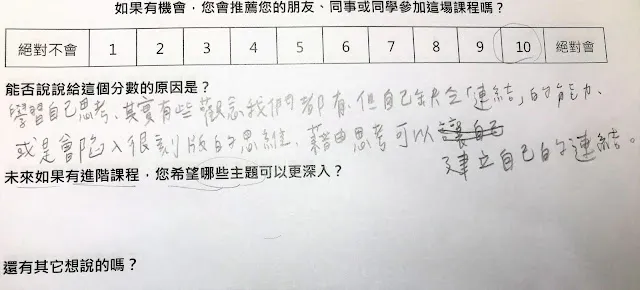 如果有機會，您會推薦您的朋友、同事或同學參加這場課程嗎？
絕對不會 1 2 3 4 5 6 7 8 9 10 絕對會
能否說說給這個分數的原因是？
學習自己思考、其實有些觀念我們都有，但自己缺乏「連結」的能力、
或是會陷入很刻版的思維，藉由思考可以讓自己
建立自己的連結。
未來如果有進階課程，您希望哪些主題可以更深入？
還有其它想說的嗎？